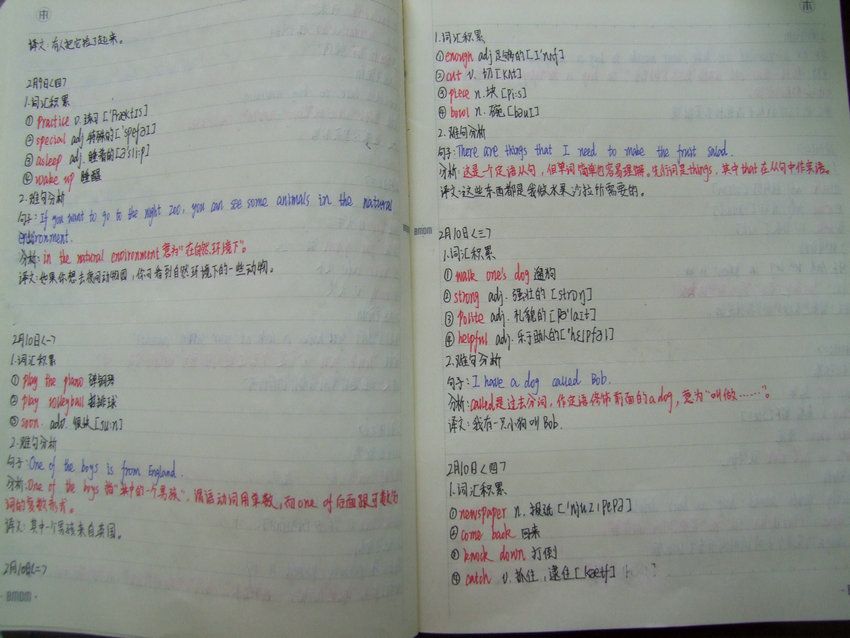 译文：有人把它捡了起来。
2月9日<四>
1.词汇积累
① practice v.练习['præktɪs]
② special adj.特殊的['speʃəl]
③ asleep adj.睡着的[ə'sli:p]
④ wake up 睡醒
2.难句分析
句子：If you want to go to the night zoo, you can see some animals in the natural
environment.
分析：in the natural environment 意为“在自然环境下”。
译文：如果你想去夜间动物园，你可看到自然环境下的一些动物。
2月10日<一>
1.词汇积累
① play the piano 弹钢琴
② play volleyball 打排球
③ soon. adv. 很快[su:n]
2.难句分析
句子：One of the boys is from England.
分析：One of the boys 指“其中的一个男孩”，谓语动词用单数，而one of 后面跟可数名
词的复数形式。
译文：其中一个男孩来自英国。
2月10日<二>
BMDM
1.词汇积累
① enough adj 足够的[ɪ'nʌf]
② cut v. 切[kʌt]
③ piece n.块[pi:s]
④ bowl n.碗[bəʊl]
2.难句分析
句子：There are things that I need to make the fruit salad.
分析：这是一个定语从句，但单词简单也容易理解。先行词是things，其中that在从句中作宾语。
译文：这些东西都是我做水果沙拉所需要的。
2月10日<三>
1.词汇积累
① walk one's dog 遛狗
② strong adj. 强壮的[strɒŋ]
③ polite adj. 礼貌的[pə'laɪt]
④ helpful adj. 乐于助人的['helpfəl]
2.难句分析
句子：I have a dog called Bob.
分析：called是过去分词，作定语修饰前面的a dog，意为“叫做……”。
译文：我有一只小狗叫Bob.
2月10日<四>
1.词汇积累
① newspaper n.报纸['nju:zˌpeɪpə]
② come back 回来
③ knock down 打倒
④ catch v.抓住，逮住[kætʃ]